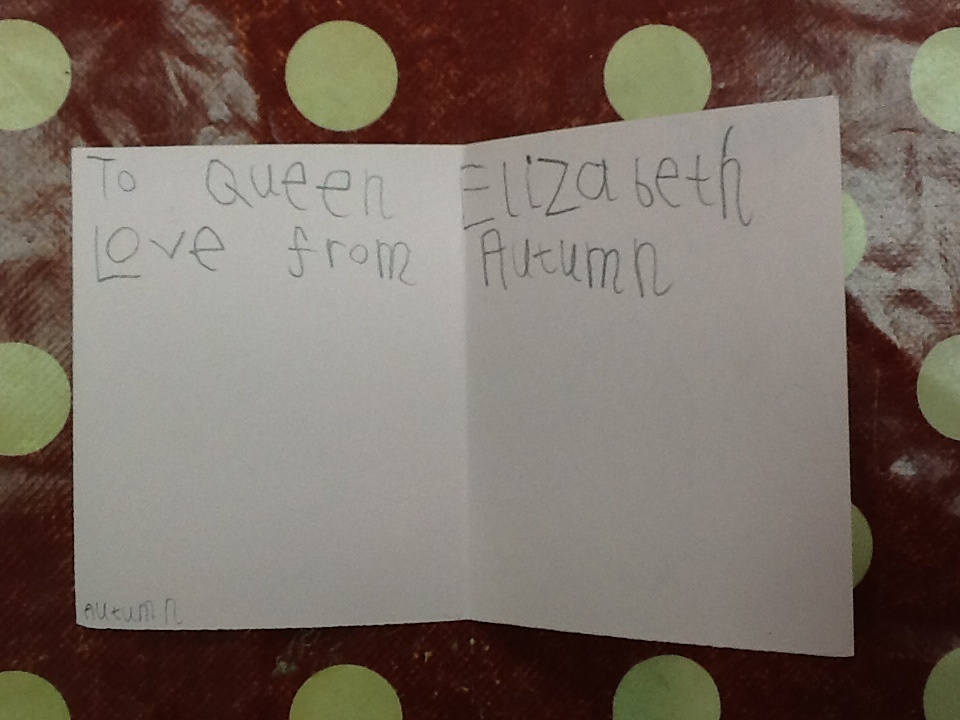 To Queen Elizabeth
Love from Autumn
Autumn